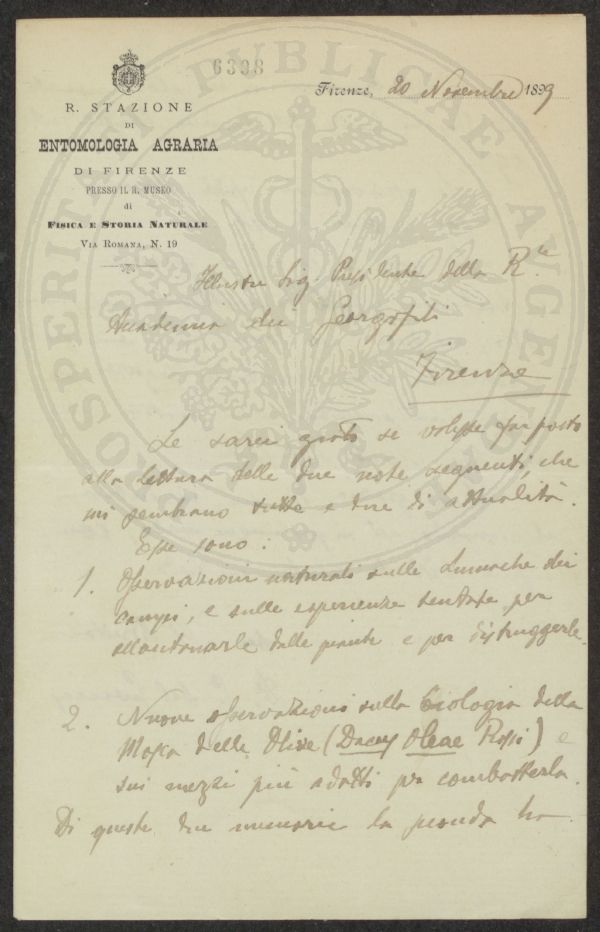 6398
R. STAZIONE
DI
ENTOMOLOGIA AGRARIA
DI FIRENZE
PRESSO IL R. MUSEO
di
FISICA E STORIA NATURALE
VIA ROMANA, N. 19
Firenze, 20 Novembre 1899
Illustre Sig. Presidente della R.le
Accademia dei Georgofili
Firenze
Le sarei grato se volesse far posto
alla lettura delle due note seguenti, che
mi sembrano tutte e due di attualità.
Esse sono:
1. Osservazioni naturali sulle Lumache dei
campi, e sulle esperienze tentate per
allontanarle dalle piante e per distruggerle.
2. Nuove osservazioni sulla biologia della
Mosca delle Olive (Dacus Oleae Rossi) e
sui mezzi più adatti per combatterla.
Di queste due memorie la seconda ha
PROSPERITATI PUBLICAE AUGENDAE